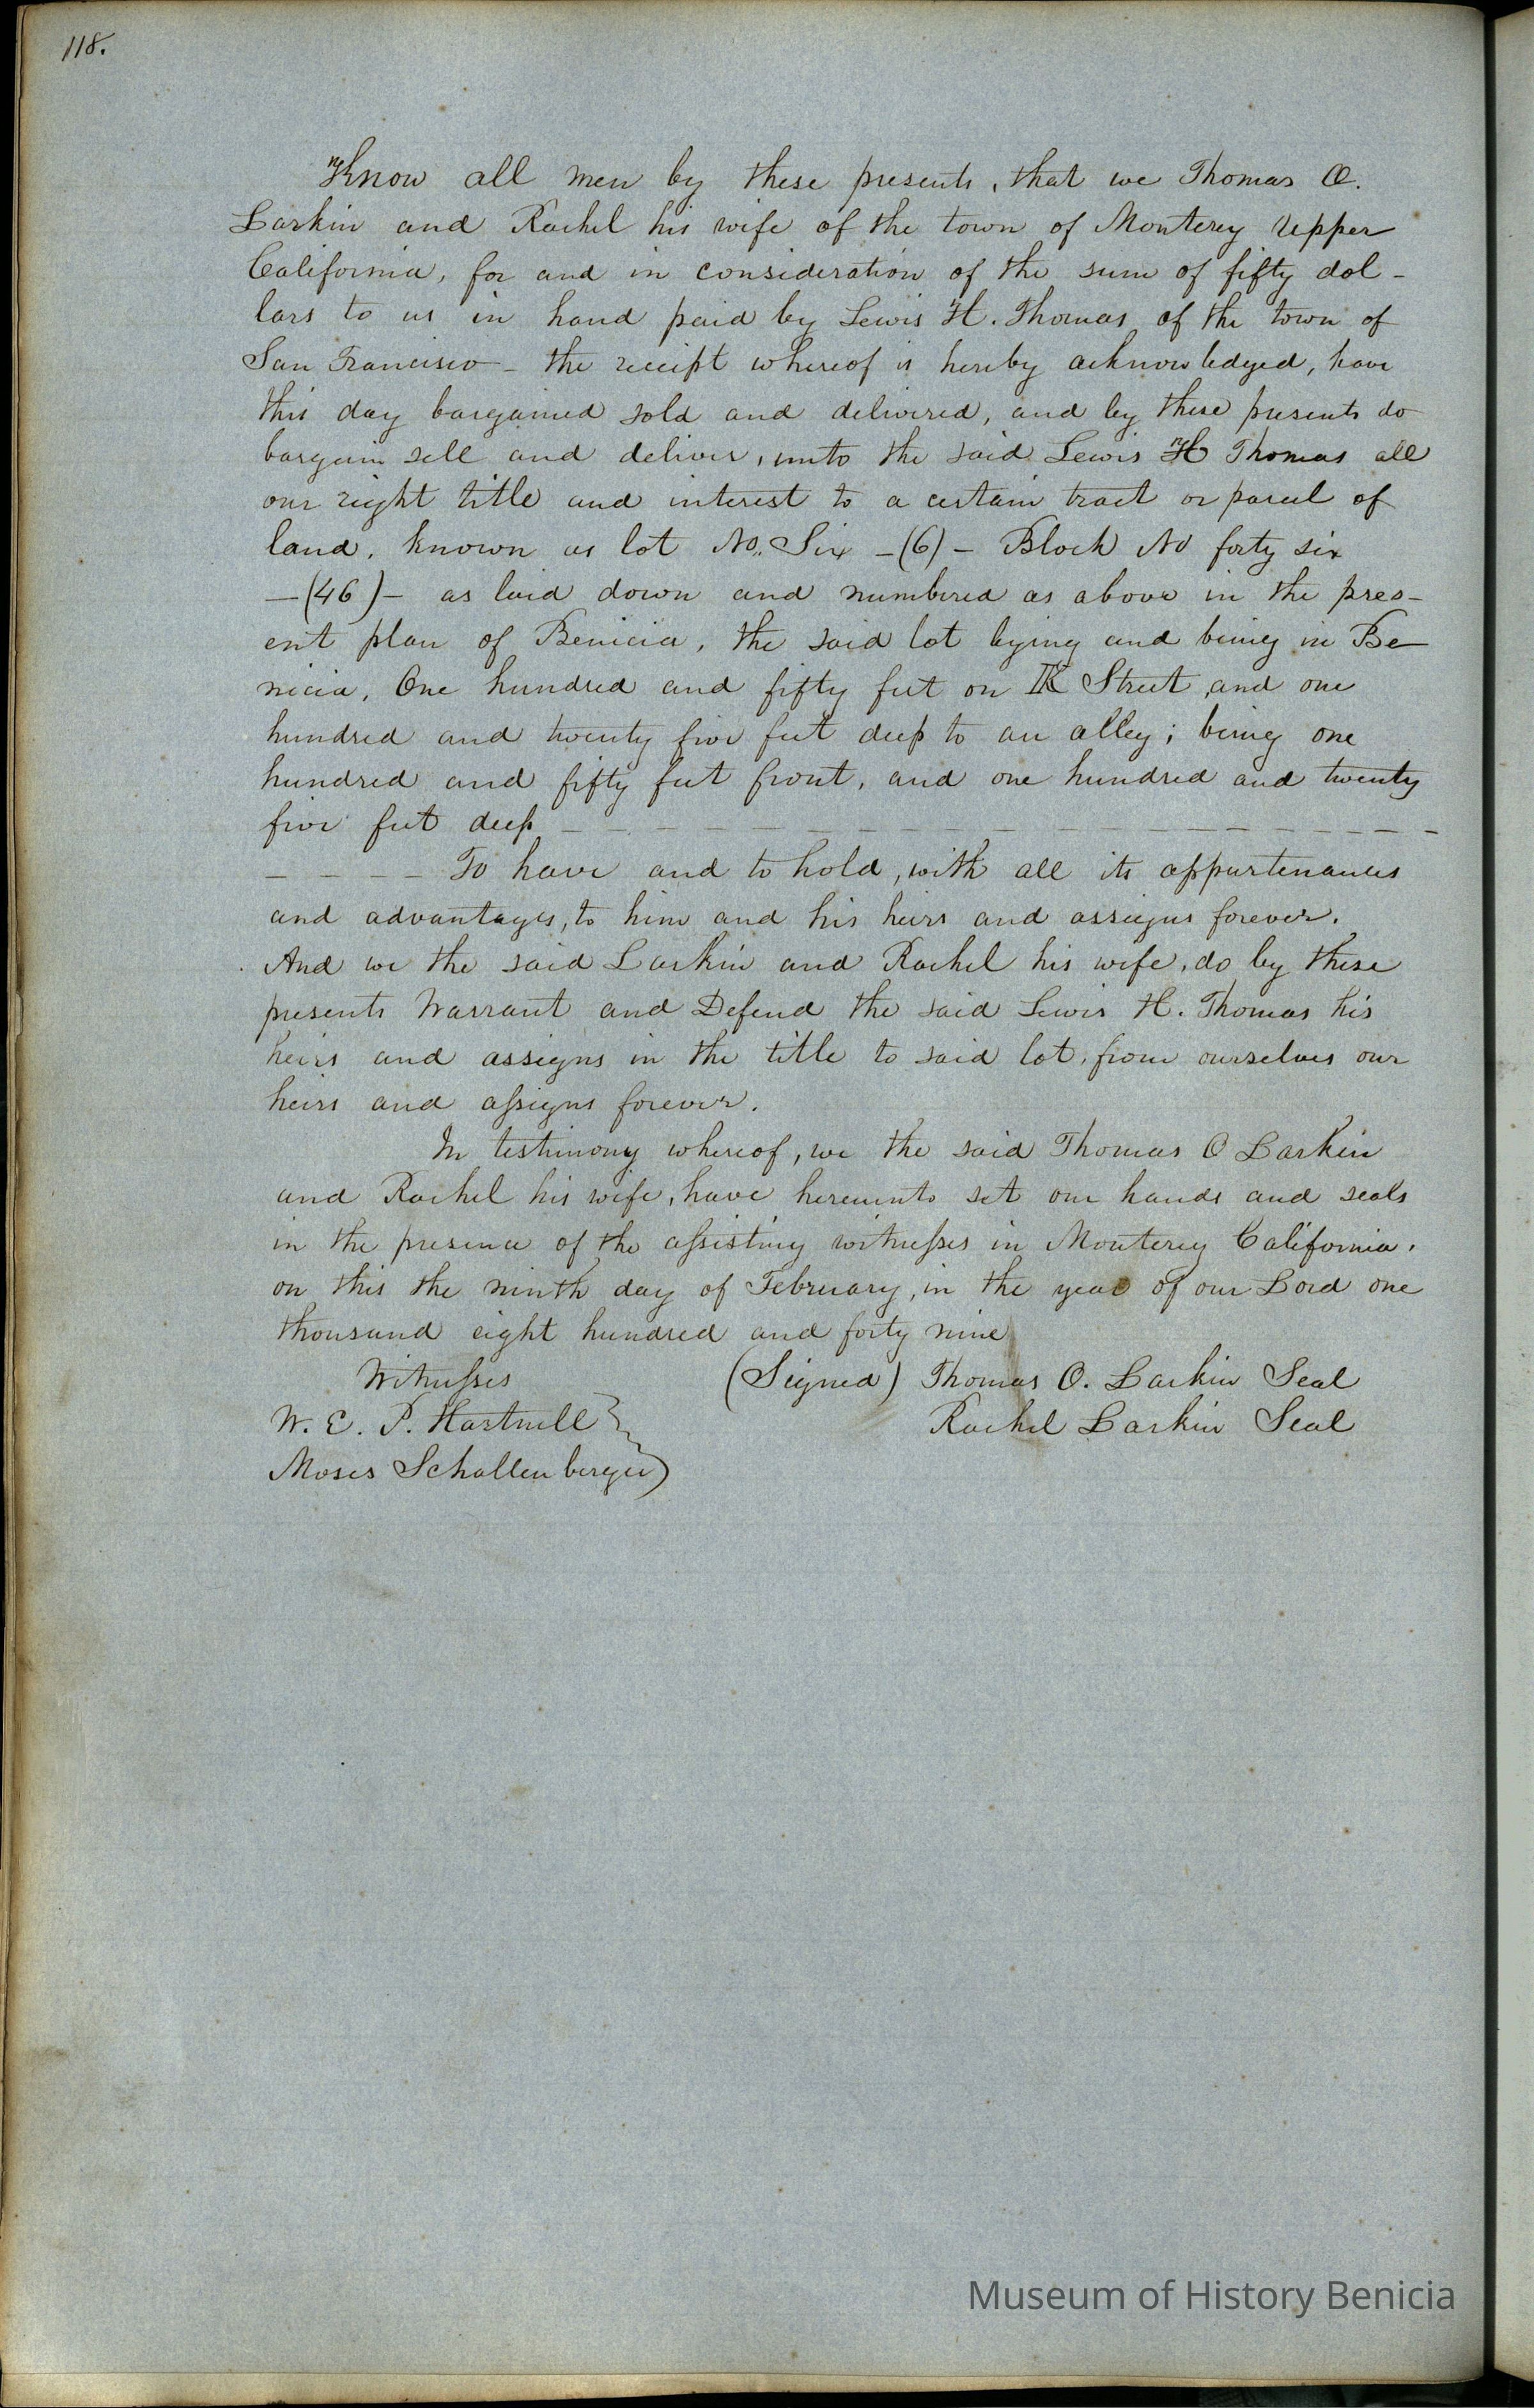 118.
Know all men by these presents, that we Thomas O.
Larkin and Rachel his wife of the town of Monterey Upper
California, for and in consideration of the sum of fifty dol-
lars to us in hand paid by Lewis H. Thomas of the town of
San Francisco - the receipt whereof is hereby acknowledged, have
this day bargained sold and delivered, and by these presents do
bargain sell and deliver, unto the said Lewis H Thomas all
our right title and interest to a certain tract or parcel of
land, known as lot No. Six -(6)- Block No forty six
-(46)- as laid down and numbered as above in the pres-
ent plan of Benicia, the said lot lying and being in Be-
nicia, One hundred and fifty feet on K Street, and one
hundred and twenty five feet deep to an alley; being one
hundred and fifty feet front, and one hundred and twenty
five feet deep - - - - - - - - - - - - - - - -
- - - - To have and to hold, with all its appurtenances
and advantages, to him and his heirs and assigns forever.
And we the said Larkin and Rachel his wife, do by these
presents Warrant and Defend the said Lewis H. Thomas his
heirs and assigns in the title to said lot, from ourselves our
heirs and assigns forever.
In testimony whereof, we the said Thomas O Larkin
and Rachel his wife, have hereunto set our hands and seals
in the presence of the assisting witnesses in Monterey California,
on this the ninth day of February, in the year of our Lord one
thousand eight hundred and forty nine
Witnesses (Signed) Thomas O. Larkin Seal
W. E. P. Hartnell Rachel Larkin Seal
Moses Schallenberger
Museum of History Benicia